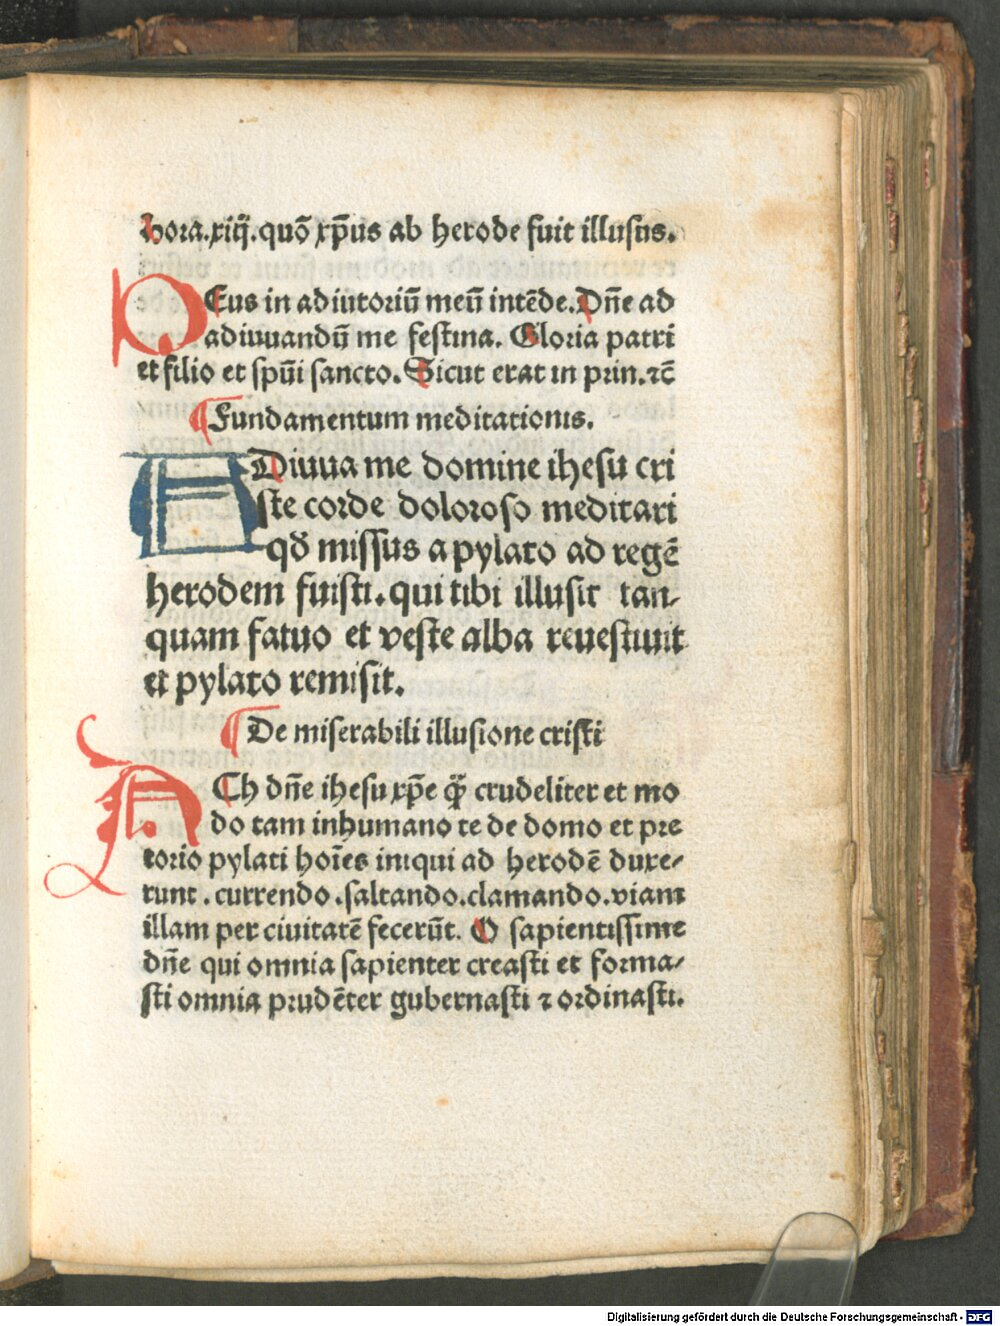 hora.xiiij.quō xp̄us ab herode fuit illusus.
DEus in adiutoriū meū intēde.Dn̄e ad
adiuuandū me festina. Gloria patri
et filio et spūi sancto.Sicut erat in prin.⁊c̄
¶Fundamentum meditationis.
ADiuua me domine ihesu cri
ste corde doloroso meditari
qđ missus a pylato ad regē
herodem fuisti.qui tibi illusit tan⸗
quam fatuo et veste alba reuestiuit
et pylato remisit.
¶De miserabili illusione cristi
ACh dn̄e ihesu xp̄e q̄ꝫ crudeliter et mo
do tam inhumano te de domo et pre
torio pylati hoīes iniqui ad herodē duxe⸗
runt.currendo.saltando.clamando.viam
illam per ciuitatē fecerūt. O sapientissime
dn̄e qui omnia sapienter creasti et forma⸗
sti omnia prudēter gubernasti ⁊ ordinasti.
Digitalisierung gefördert durch die Deutsche Forschungsgemeinschaft - DFG